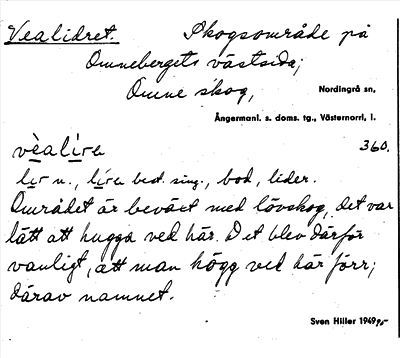 Vealidret. Skogsområde på
Omnebergets västsida;
Omne skog, Nordingrå sn,
Ångermanl. s. doms. tg., Västernorrl, l.
vèalíre 360.
lir n., líre best. sing., bod, lider.
Området är beväxt med lövskog, det var
lätt att hugga ved här. Det blev därför
vanligt, att man högg ved här förr;
därav namnet.
Sven Hiller 1949